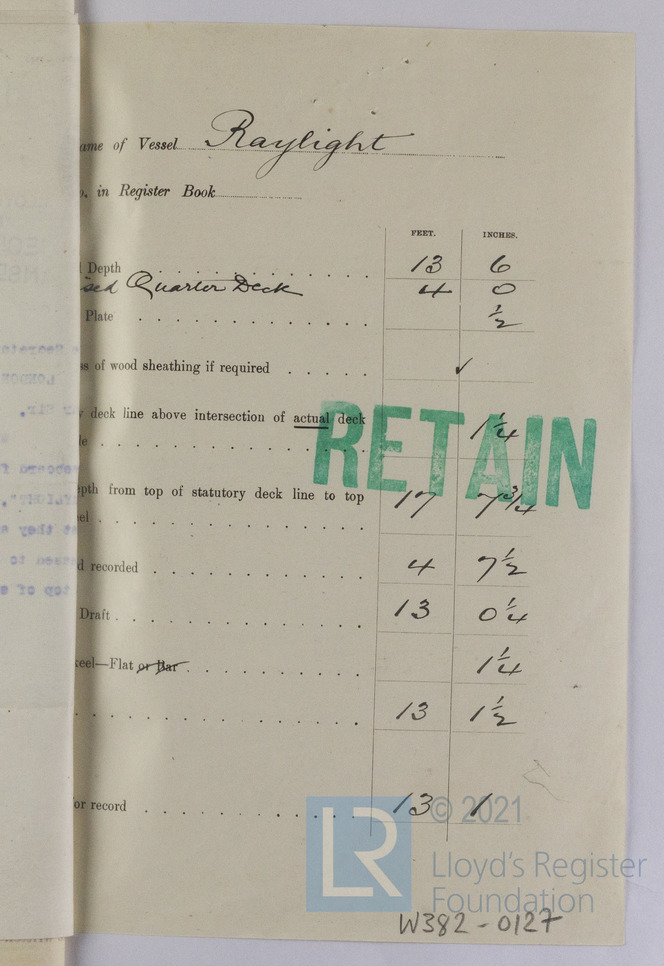 ame of Vessel Raylight
o. in Register Book
FEET. INCHES.
Depth 13 6
sed Quarter Deck 4 0
Plate 1/2
s of wood sheathing if required ✓
deck line above intersection of actual deck
le 1 1/4
RETAIN
epth from top of statutory deck line to top
el 17 7 3/4
d recorded 4 7 1/2
Draft 13 0 1/4
keel—Flat or Bar 1 1/4
13 1 1/2
or record 13 1
LR © 2021
Lloyd's Register
Foundation
W382-0127